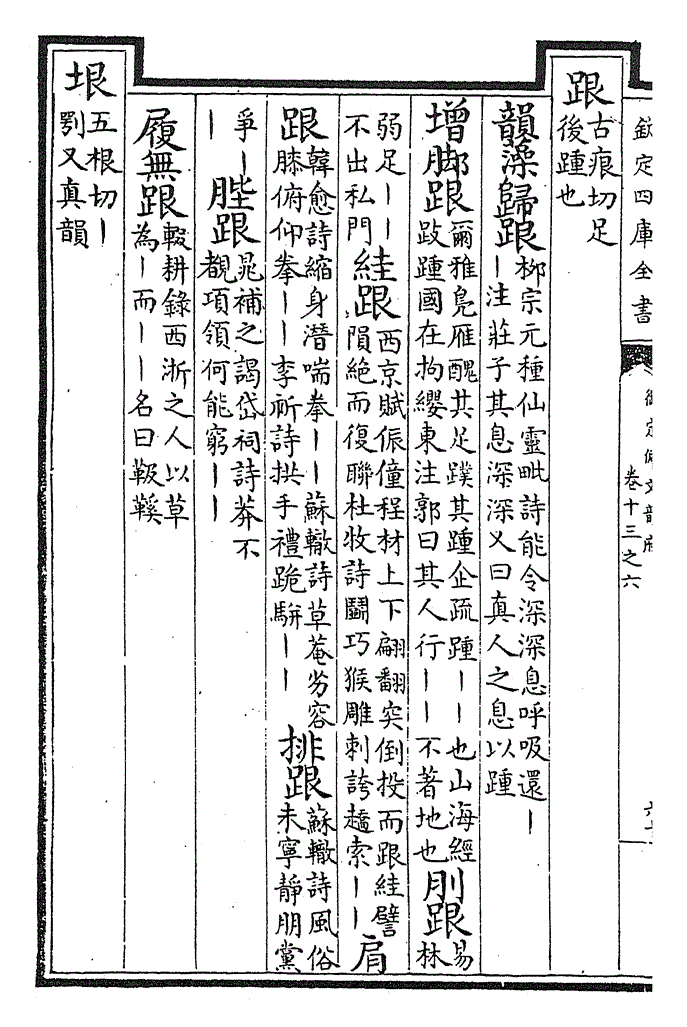 欽定四庫全書
御定佩文韻府
卷十三之六
跟
古痕切足
後踵也
韻藻歸跟
柳宗元種仙靈毗詩能令深深息呼吸還丨
丨注莊子其息深深又曰真人之息以踵
增脚跟
爾雅鳧雁醜其足蹼其踵企疏踵丨丨也山海經
跂踵國在拘纓東注郭曰其人行丨丨不著地也
刖跟
易
林
弱足丨丨
不出私門
絓跟
西京賦侲僮程材上下翩翻突倒投而跟絓譬
隕絶而復聯杜牧詩鬭巧猴雕刺誇趫索丨丨
肩
跟
韓愈詩縮身潛喘拳丨丨蘇轍詩草菴劣容
膝俯仰拳丨丨李祈詩拱手禮跪駢丨丨
排跟
蘇轍詩風俗
未寧靜朋黨
爭丨
丨
䏶跟
晁補之謁岱祠詩莽不
覩項領何能窮丨丨
履無跟
輟耕錄西浙之人以草
為丨而丨丨名曰靸鞵
垠
五根切丨
㓵又真韻